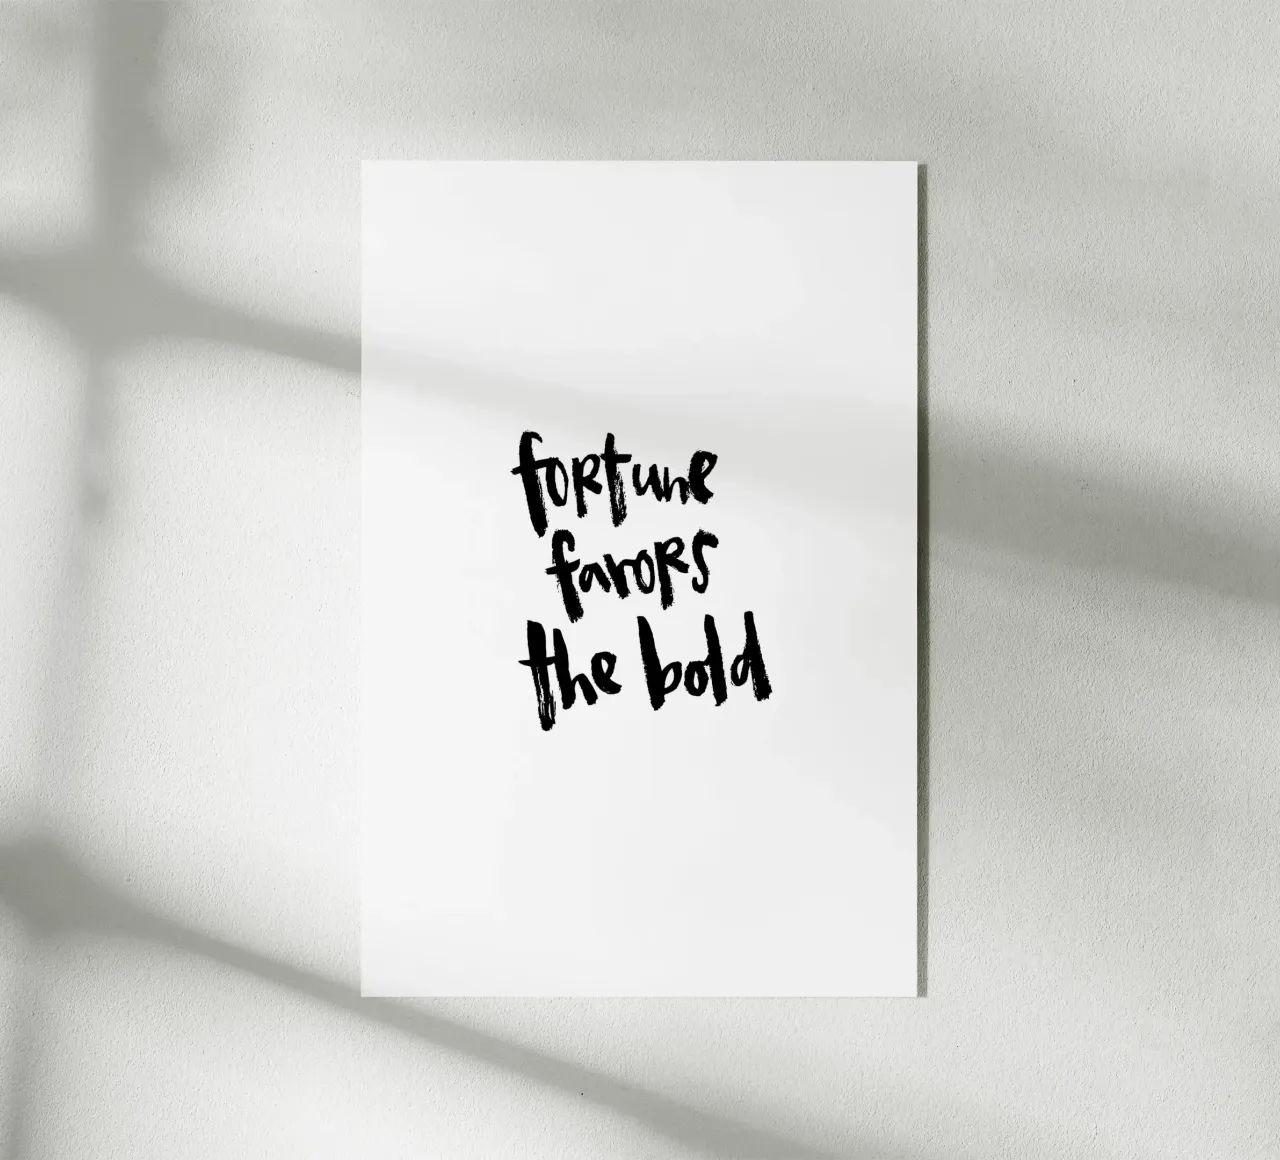 fortune
favors
the bold